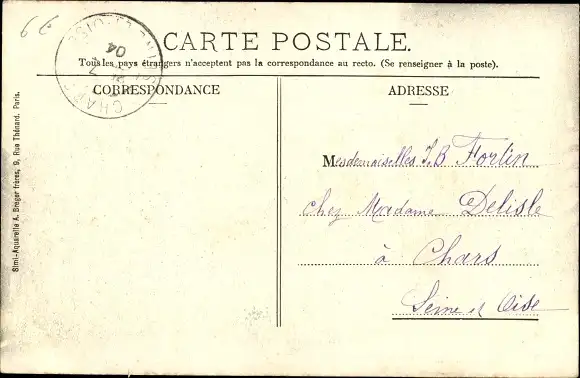 69
CHARS
04
CARTE POSTALE.
Tous les pays étrangers n'acceptent pas la correspondance au recto. (Se renseigner à la poste).
CORRESPONDANCE
ADRESSE
Mesdemoiselles J. B Fortin
chez Madame Delisle
à Chars
Seine et Oise
Simi-Aquarelle A. Breger frères, 9, Rue Thénard. Paris.